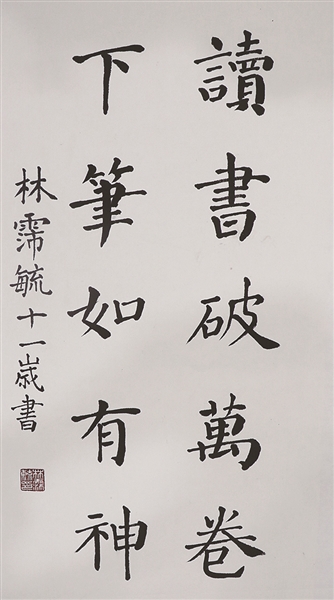 讀書破萬卷
下筆如有神
林霈毓十一歲書